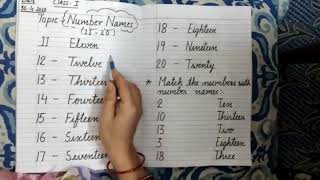 Date
30.4.2020
CLASS - I
Topic { Number Names
(11-20)
11 Eleven
12 - Twelve
13 - Thirteen
14 - Fourteen
15 - Fifteen
16 - Sixteen
17 - Seventeen
18 - Eighteen
19 - Nineteen
20 - Twenty
* Match the numbers with
number names:
2 Ten
10 Thirteen
13 Two
3 Eighteen
18 Three